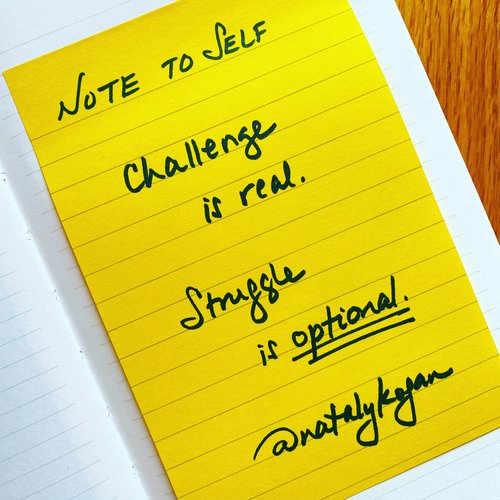 NOTE TO SELF
Challenge
is real.
Struggle
is optional.
@natalykogan